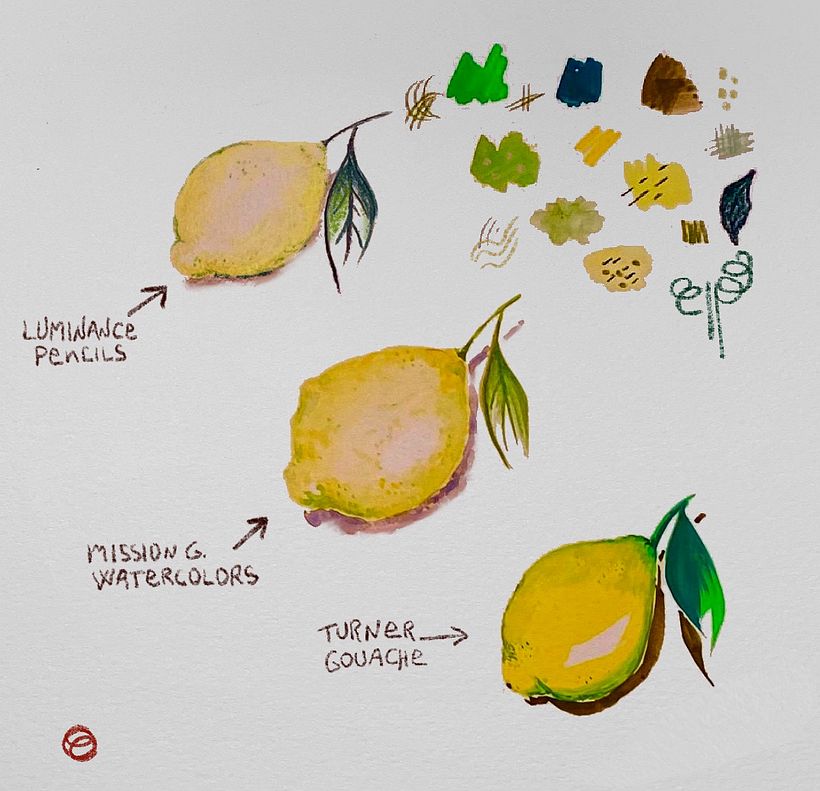 LUMINANCE
PENCILS
MISSION G.
WATERCOLORS
TURNER
GOUACHE